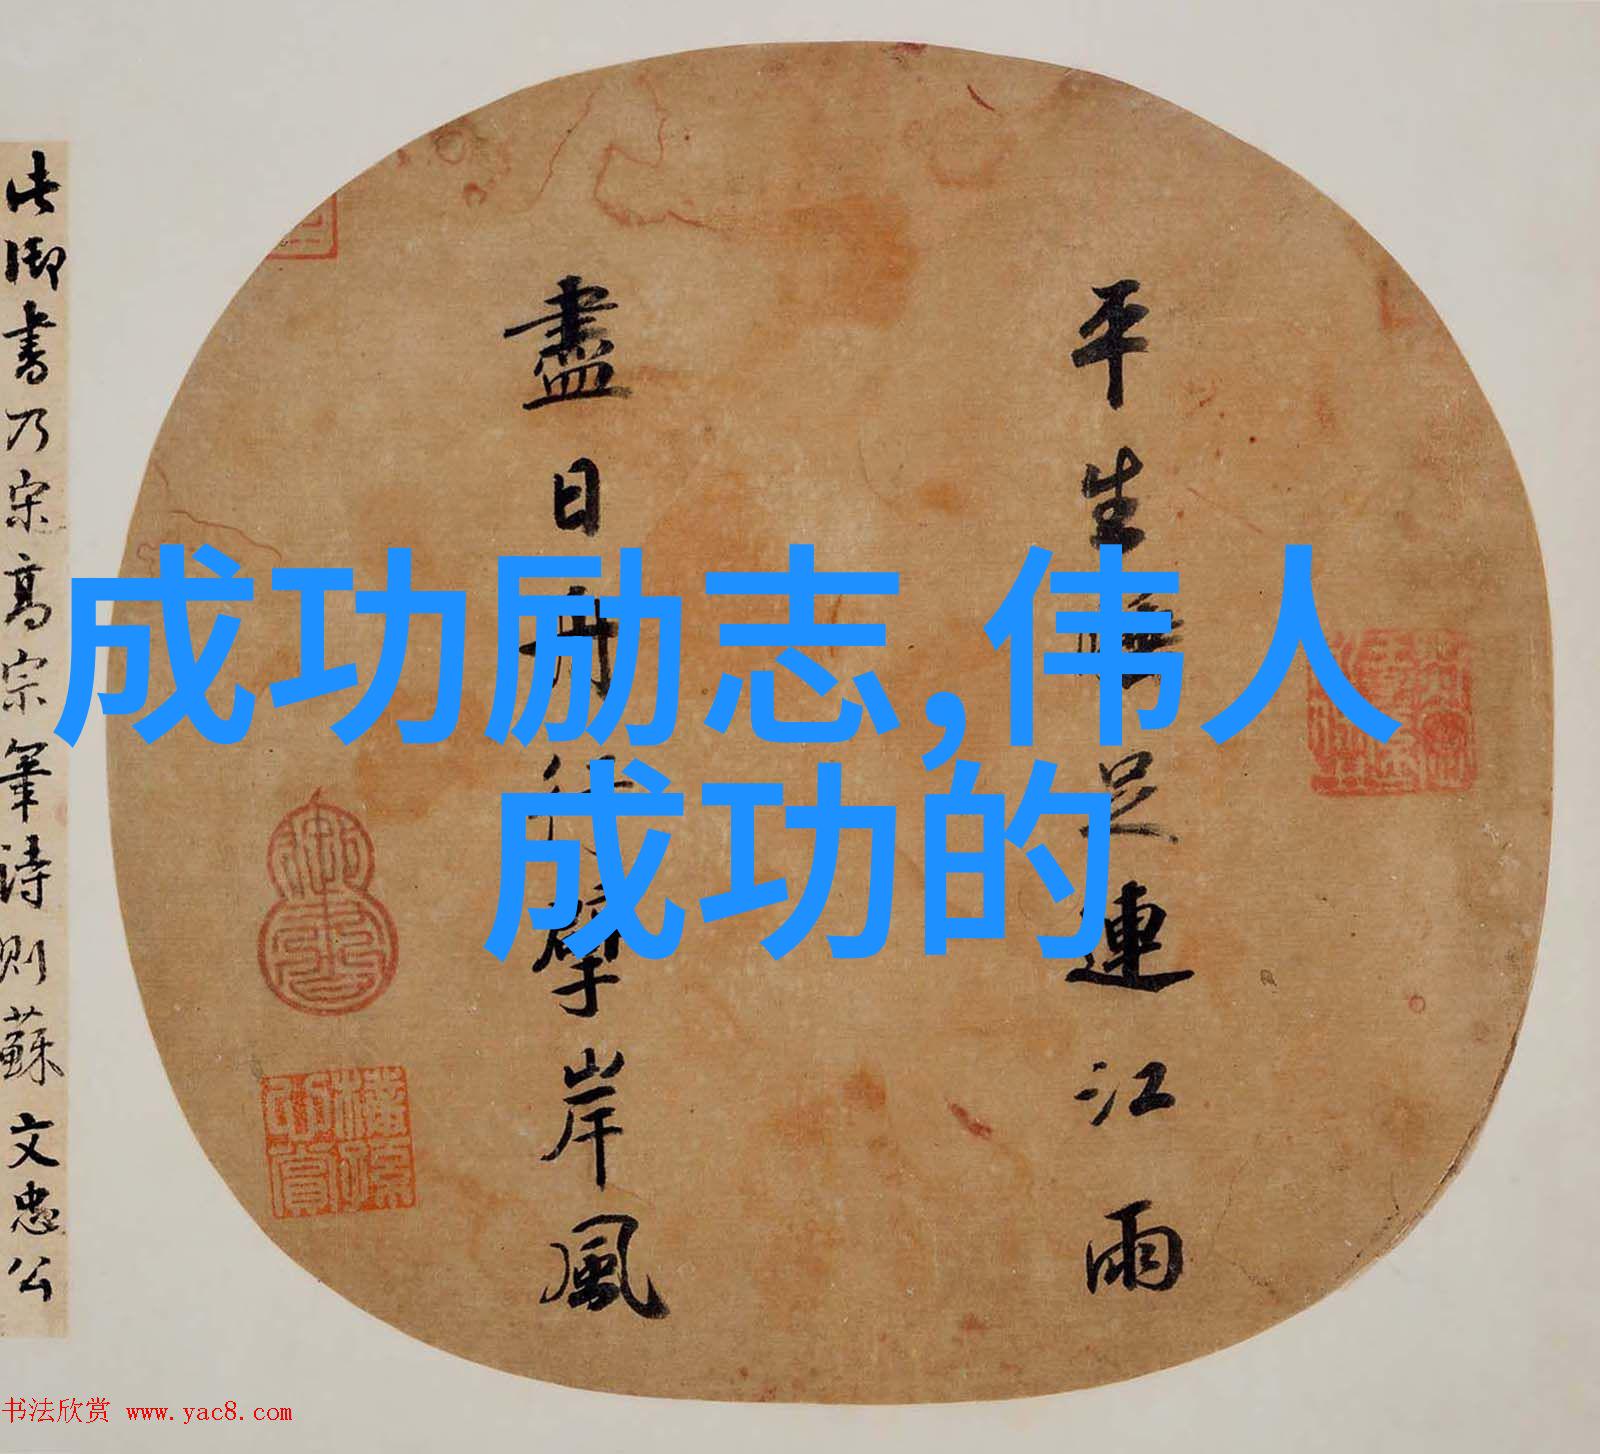 成功励志,伟人
成功的
平生足連江雨
盡日舟擘岸風
此御書乃宋高宗筆詩則蘇文忠公
书法欣赏 www.yac8.com